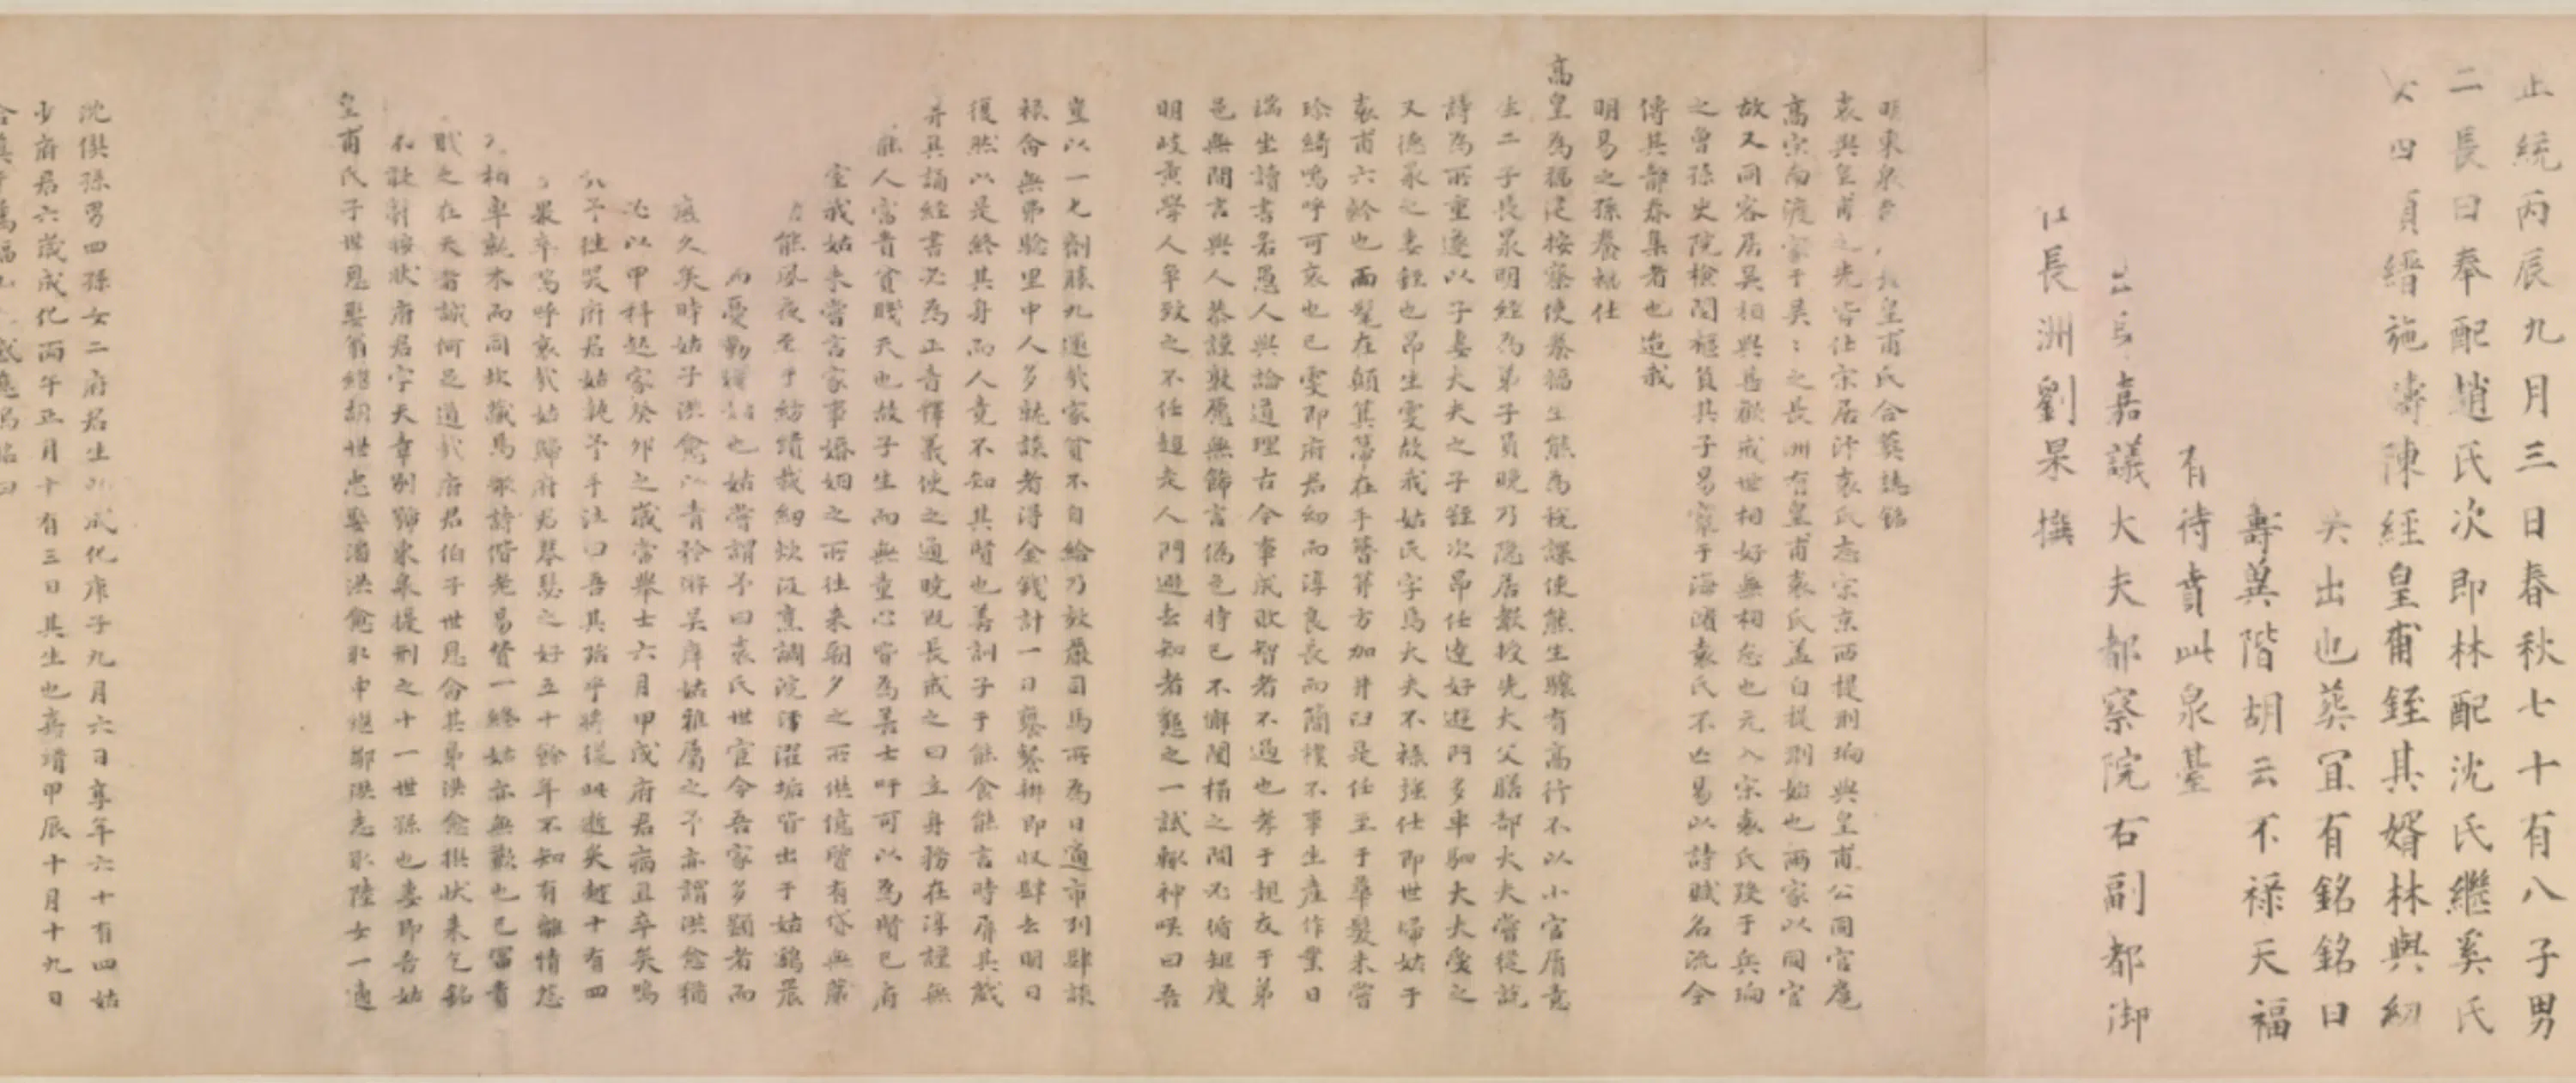 正統丙辰九月三日春秋七十有八子男
二長曰奉配趙氏次即林配沈氏繼奚氏
女四頊縉施濤陳經皇甫銍其婿林與幼
矢出也葬宜有銘銘曰
壽異階胡云不祿天福
有待賁此泉臺
嘉議大夫都察院右副都御
長洲劉杲撰
明東泉皇甫氏合葬誌銘
袁與皇甫之先皆仕宋居汴袁氏志宗京西提刑珦與皇甫公同官寔
高宗南渡家于吳吳之長洲有皇甫袁氏蓋自提刑始也兩家以同官
故又同客居吳相與甚歡戒世相好無相忘也元入宋袁氏殁于兵珦
之曾孫史院檢閱樞負其子易竄于海濱袁氏不亡易以詩賦名流今
傳其靜春集者也迨我
明易之孫養福仕
高皇為稱疋按察使養福生熊為稅課使熊生驥有高行不以小官屑意
生二子長杲明經為弟子員晚乃隱居教授先大父膳部大夫嘗從說
詩為所重遂以子妻大夫之子雖次昂任達好遊門多車駟大夫愛之
又德杲之妻姪也昂生雯故我姑氏字焉大夫不祿強仕即世歸姑于
袁甫六齡也而髦在顛箕箒在手簪笄方加井臼是任至于華髮未嘗
珍綺嗚呼可哀也已雯即府君幼而淳良長而簡樸不事生產作業日
端坐讀書若愚人與論道理古今事成敗智者不過也孝于親友于弟
邑無間言與人恭謹敦愿無飾言偽色待己不懈閨楊之間必循矩度
明岐黃學人爭致之不任趨走人門避去知者懇之一試輒神嘆曰吾
豈以一匕劑勝九還哉家貧不自給乃效嚴司馬所為日適市列肆談
祿命無弗驗里中人多就談者得金錢計一日饔餐辦即收肆去明日
復然以是終其身而人竟不知其賢也善訓子子能食能言時屏其戲
弄具誦經書必為正音釋義使之通曉既長戒之曰立身務在淳謹無
能人富貴貧賤天也故子生而無童心皆為善士吁可以為賢已府
室我姑未嘗言家事婚姻之所往來朝夕之所供億皆有贷無策
能夙夜至于紡績裁紉炊汲烹調浣濯滌垢皆出于姑鷄晨
而憂勤也姑嘗謂予曰袁氏世宦令吾家多顯者而
久矣時姑子洪愈以青衿游吳庠姑雅屬之予亦謂洪愈猶
必以甲科起家癸卯之歲當舉士六月甲戌府君病且卒矣嗚
予往哭府君姑執予手泣曰吾其殆乎將從此逝矣越十有四
果卒嗚呼哀哉姑歸府君琴瑟之好五十餘年不知有離情怨
相率就木而同坎藏焉鄉詩偕老易贊一終姑亦無歉也已富貴
賤之在天者誠何足道哉府君伯子世恩命其弟洪愈撰狀來乞銘
不敢辭按狀府君字天章別號東泉提刑之十一世孫也妻即吾姑
皇甫氏子世恩娶翁繼胡世忠娶潘洪愈取申繼鄒洪志取陸女一適
沈僎孫男四孫女二府君生以成化庚子九月六日享年六十有四姑
少府君六歲成化丙午正月十有三日其生也嘉靖甲辰十月十九日